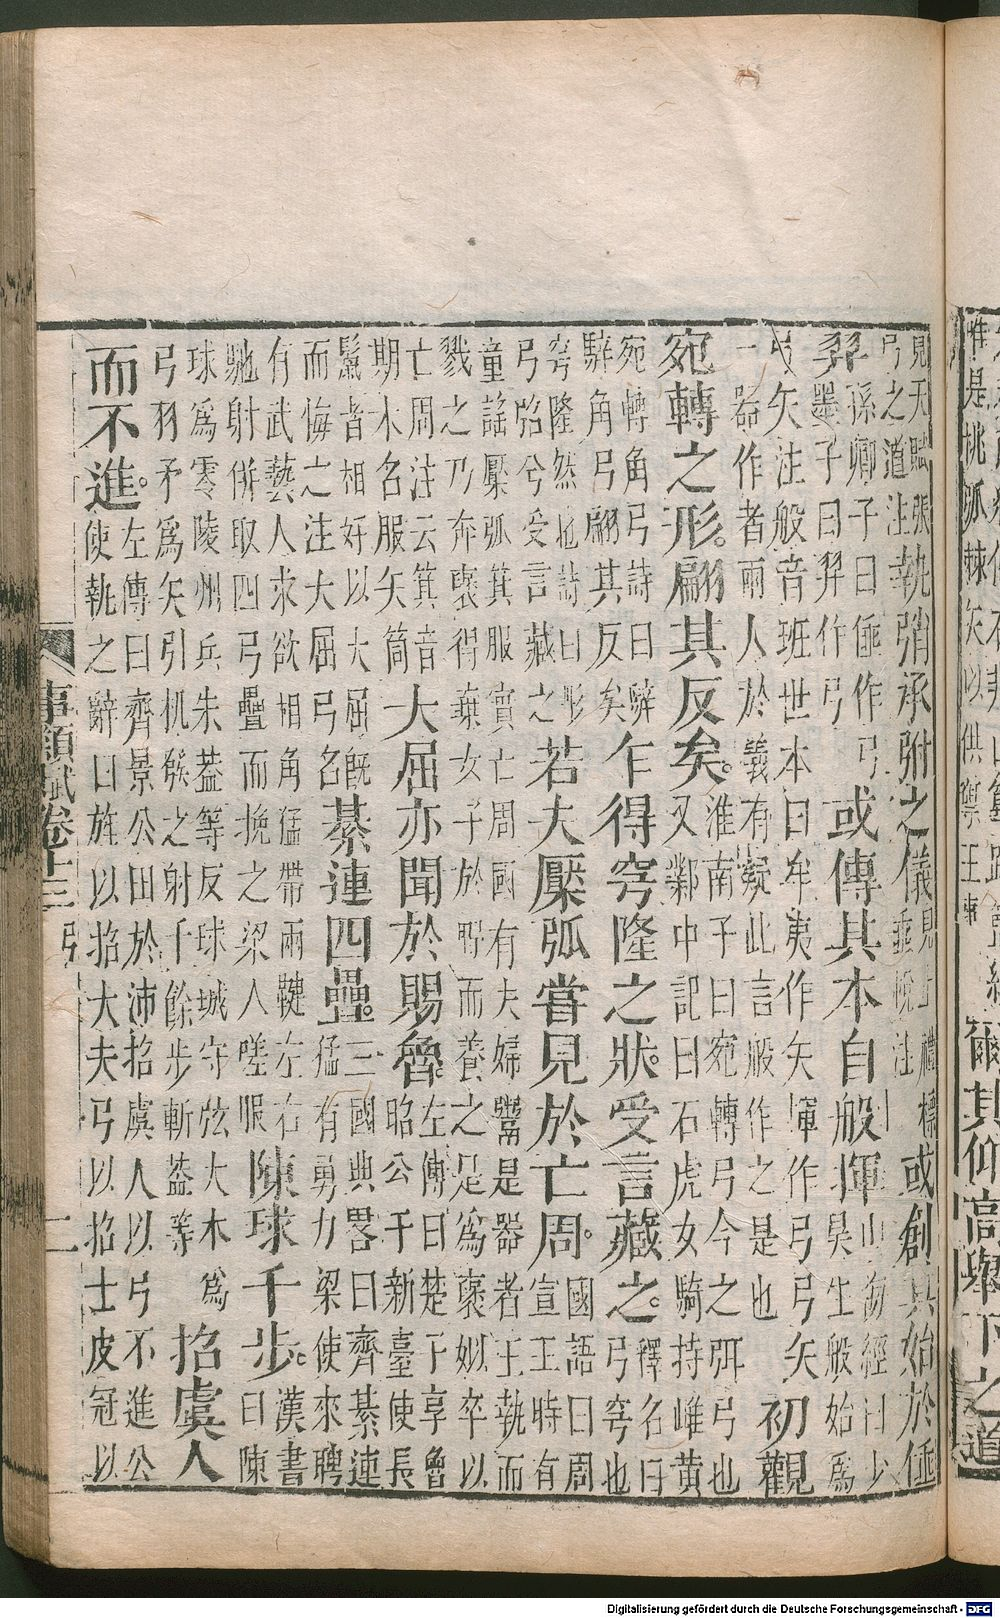 唯是桃弧棘矢以供禦王事
爾其仰高舉下之道
見天賦張
弓之道注
執弰承弣之儀
見士禮標
垂帨注
或創其始於倕
孫卿子曰倕作弓
羿
墨子曰羿作弓
或傳其本自般揮
山海經曰少
昊生般始為
弓矢注般音班世本曰牟夷作矢揮作弓弓矢
一器作者兩人於義有疑此言般作之是也
初觀
宛轉之形。翩其反矣。
淮南子曰宛轉弓今之弭弓也
又鄴中記曰石虎女騎持雌黃
宛轉角弓詩曰騂
騂角弓翩其反矣
乍得穹隆之狀。受言藏之。
釋名曰
弓穹也
穹隆然也詩曰彤
弓弨兮受言藏之
若夫檿弧嘗見於亡周。
國語曰周
宣王時有
童謠檿弧箕服實亡周國有夫婦鬻是器者王執而
戮之乃奔褒得棄女子於野而養之是為褒姒卒以
亡周注云箕音
期木名服矢筒
大屈亦聞於賜魯。
左傳曰楚子享魯
昭公于新臺使長
鬣者相好以大屈既
而悔之注大屈弓名
綦連四疊。
三國典畧曰齊綦連
猛有勇力梁使來聘
有武藝人求欲相角猛帶兩鞬左右
馳射併取四弓疊而挽之梁人嗟服
陳球千步。
漢書
曰陳
球為零陵州兵朱蓋等反球城守弦大木為
弓羽矛為矢引机發之射千餘步斬蓋等
招虞人
而不進。
左傳曰齊景公田於沛招虞人以弓不進公
使執之辭曰旌以招大夫弓以招士皮冠以
事類賦卷十三 弓 二
Digitalisierung gefördert durch die Deutsche Forschungsgemeinschaft - DFG